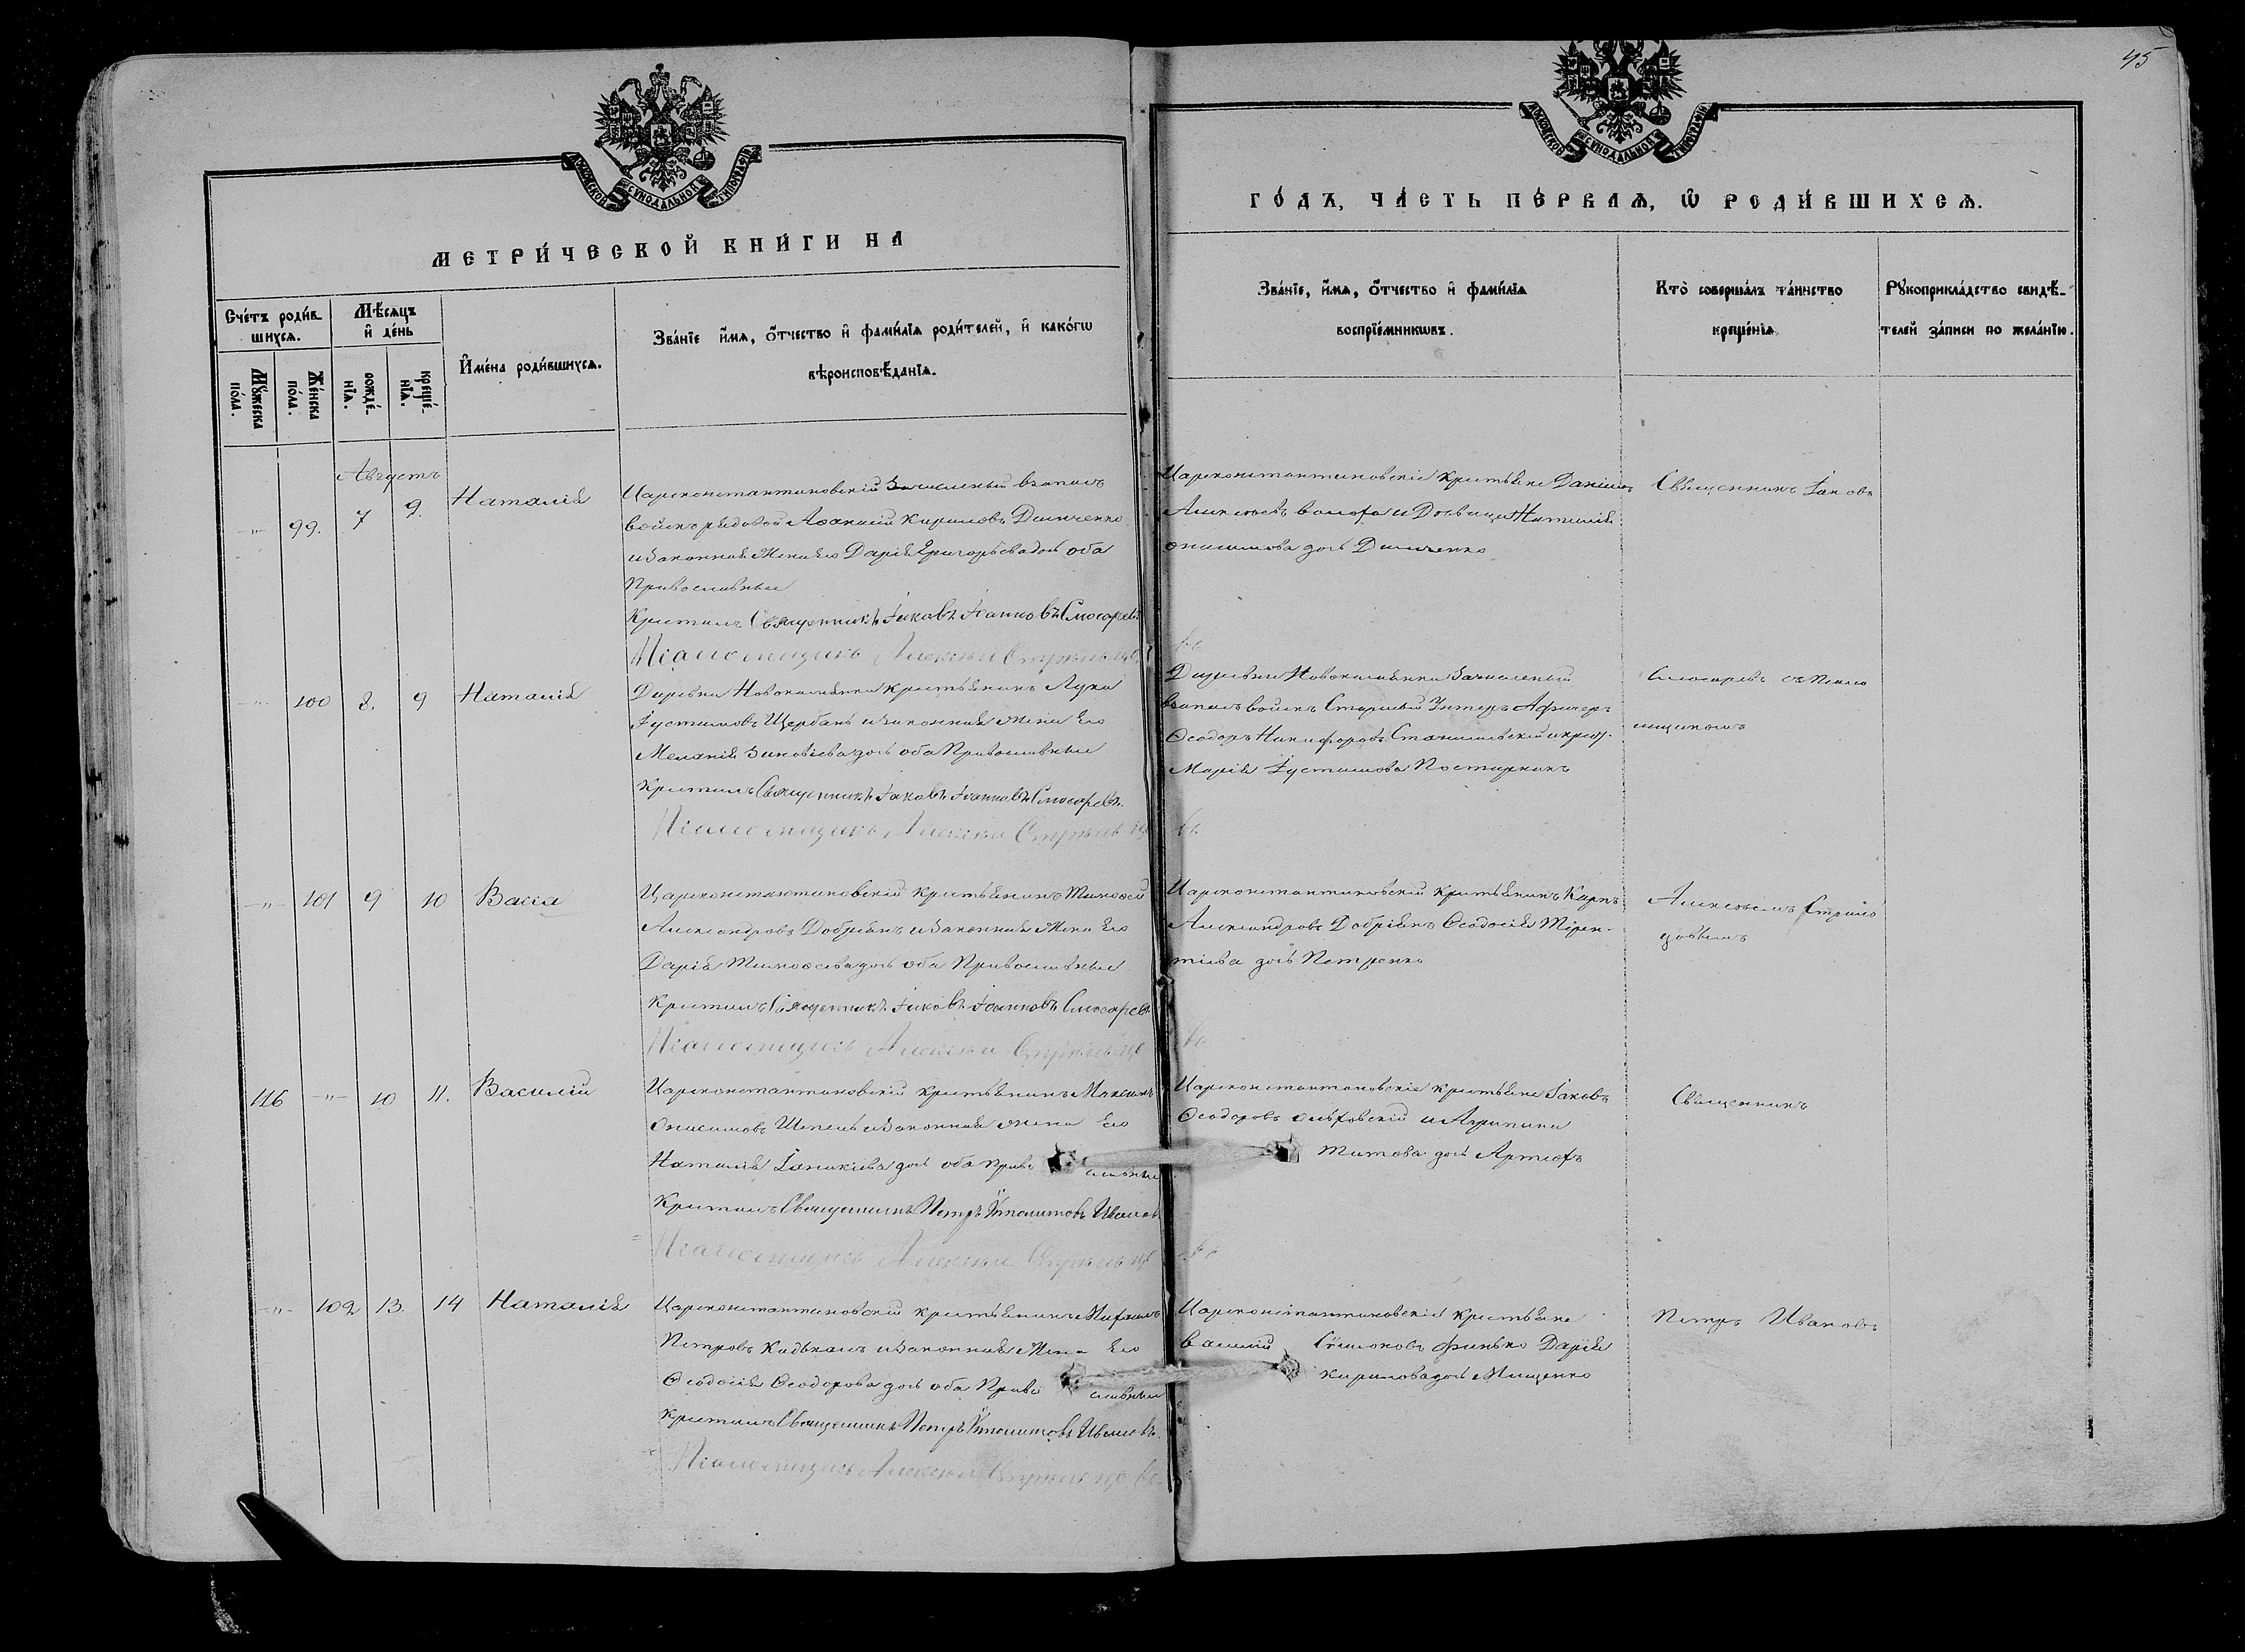 45
МОСКОВСКОЙ СѴНОДАЛЬНОЙ ТИПОГРАФІИ
МОСКОВСКОЙ СѴНОДАЛЬНОЙ ТИПОГРАФІИ
МЕТРИ́ЧЕСКОЙ КНИ́ГИ НА
ГО́ДЪ, ЧА́СТЬ ПЕ́РВАѦ, Ѽ РОДИ́ВШИХСѦ.
Сче́тъ роди́в-
шихсѧ.
Мѣ́сѧцъ
и҆ де́нь
Мꙋ́жеска
по́ла.
Же́нска
по́ла.
рожде́-
нїѧ.
креще́-
нїѧ.
И҆мена̀ роди́вшихсѧ.
Зва́нїе и҆́мѧ, ѻ҆́тчество и҆ фами́лїѧ роди́телей, и҆ како́гѡ
вѣроисповѣ́данїѧ.
Зва́нїе, и҆́мѧ, ѻ҆́тчество и҆ фами́лїѧ
воспрїе́мникѡвъ.
Кто̀ соверша́лъ та́инство
креще́нїѧ.
Рꙋкоприкла́дство свидѣ́-
телей за́писи по жела́нїю.
Августъ
99. 7 9. Наталія
Цареконстантиновскій Зачисленый взапасъ
войскъ рядовой Аѳанасій Кириловъ Демченко
и законная жена его Дарія Григорьева доч оба
Православные
Крестилъ Священникъ Іаковъ Іоанновъ Слюсаревъ
Псаломщикъ Алексѣй Стрѣльцовъ
Цареконстантиновскіе крестьяне Даніилъ
Алексѣевъ и Дѣвица Наталія
онисимова доч Демченко
Священникъ Іаковъ
100 8. 9 Наталія
Деревни Новокаменки крестьянинъ Лука
Іустиновъ Щербань и законная жена его
Меланія Зиновіева доч оба Православные
Крестилъ Священникъ Іаковъ Іоанновъ Слюсаревъ.
Псаломщикъ Алексѣй Стрѣльцовъ
Деревни Зачисленый
взапасъ войскъ Старшій Унтеръ Афицеръ
Ѳеодоръ Никифоровъ
Марія Іустинова
Слюсаревъ съ Псало
мщикомъ
101 9 10 Васса
Цареконстантиновскій крестьянинъ Тимоѳей
Александровъ Добріянъ и законная жена его
Дарія Тимоѳеева доч оба Православные
Крестилъ Священникъ Іаковъ Іоанновъ Слюсаревъ
Псаломщикъ Алексѣй Стрѣльцовъ
Цареконстантиновскій крестьянинъ Карпъ
Александровъ Добріянъ Ѳеодосія Терен-
тіева доч Петренко
Алексѣемъ Стрѣль
цовымъ
116 10 11. Василій
Цареконстантиновскій крестьянинъ Максимъ
Онисимовъ Шепель и законная жена его
Наталія Іоаникіева доч оба Православные
Крестилъ Священникъ Петръ Ипполитовъ Ивановъ
Псаломщикъ Алексѣй Стрѣльцовъ
Цареконстантиновскіе крестьяне Іаковъ
Ѳеодоровъ и Агрипина
Титова доч
Священникъ
102 13. 14 Наталія
Цареконстантиновскій крестьянинъ Михаилъ
Петровъ и законная жена его
Ѳеодосія Ѳеодорова доч оба Православные
Крестилъ Священникъ Петръ Ипполитовъ Ивановъ.
Псаломщикъ Алексѣй Стрѣльцовъ
Цареконстантиновскіе крестьяне
Василій Дарія
Кирилова доч Мищенко
Петръ Ивановъ